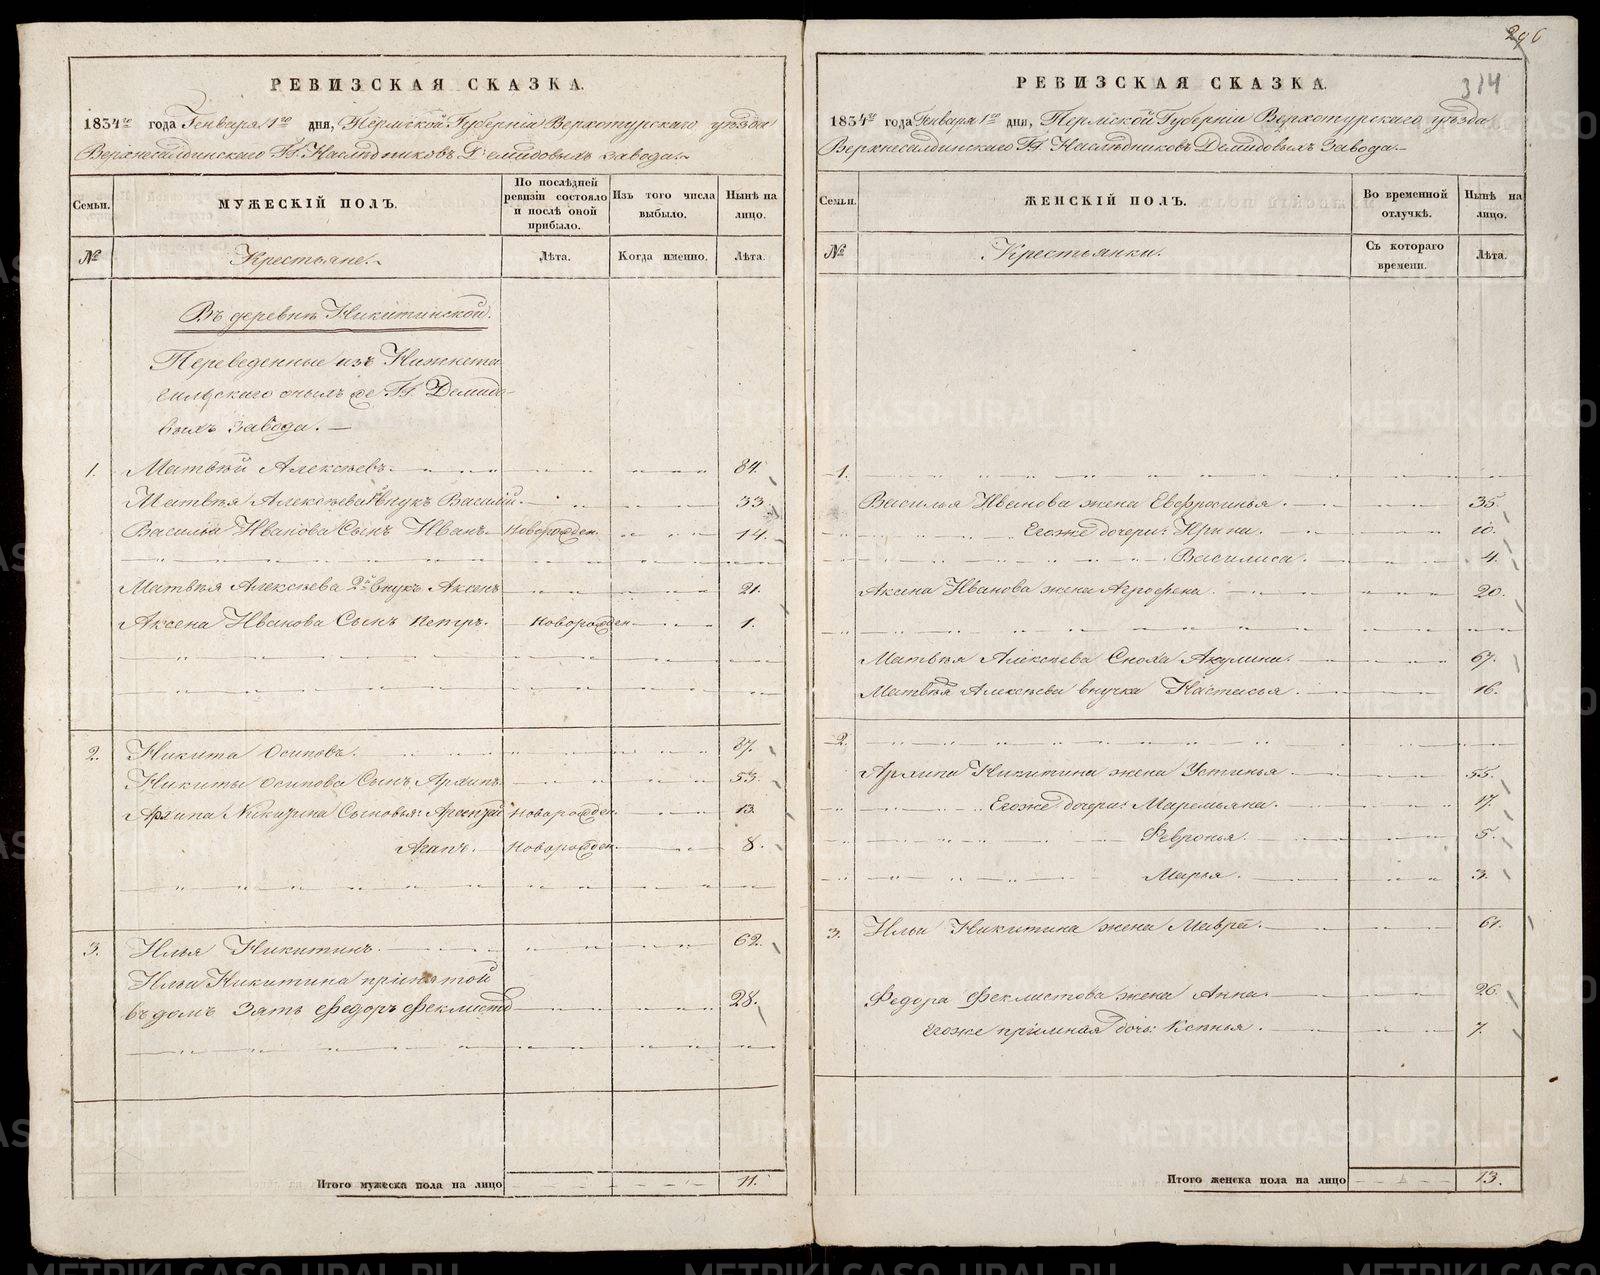 296
314
РЕВИЗСКАЯ СКАЗКА.
1834го года Генваря 1го дня, Пермской Губерніи Верхотурскаго уѣзда
Верхнесалдинскаго Гг. Наслѣдниковъ Демидовыхъ завода.
Семьи. МУЖЕСКІЙ ПОЛЪ. По послѣдней ревизіи состояло и послѣ оной прибыло. Изъ того числа выбыло. Нынѣ на лицо.
№ Крестьяне. Лѣта. Когда именно. Лѣта.
Въ деревнѣ Никитинской.
Переведенные изъ Нижнета
гилдскаго
Гг. Демидо-
выхъ завода.
1. Матвѣй Алексѣевъ. 84.
Матвѣя Алексѣева 1й внукъ Василій. 33.
Василья Иванова Сынъ Иванъ Новорожден. 14.
Матвѣя Алексѣева 2й внукъ Аксенъ 21.
Аксена Иванова Сынъ Петръ. Новорожден. 1.
2. Никита Осиповъ. 87.
Никиты Осипова Сынъ Архипъ. 53.
Архипа Никитина Сыновья: Новорожден. 13.
Агапъ. Новорожден. 8.
3. Илья Никитинъ. 62.
Ильи Никитина принятой
въ домъ Зять Федоръ Феклисто 28.
Итого мужеска пола на лицо 11.
РЕВИЗСКАЯ СКАЗКА.
1834го года Генваря 1го дня, Пермской Губерніи Верхотурскаго уѣзда
Верхнесалдинскаго Гг. Наслѣдниковъ Демидовыхъ Завода.
Семьи. ЖЕНСКІЙ ПОЛЪ. Во временной отлучкѣ. Нынѣ на лицо.
№ Крестьянки. Съ котораго времени. Лѣта.
1.
Василья Иванова жена Евфросинья. 35.
Егоже дочери: Ирина. 10.
Василиса. 4.
Аксена Иванова жена Агрофена. 20.
Матвѣя Алексѣева Сноха Акулина. 67.
Матвѣя Алексѣева внучка Настасья. 16.
2.
Архипа Никитина жена Устинья 55.
Егоже дочери: Маремьяна. 17.
Февронья. 5.
Марья. 3.
3. Ильи Никитина жена Мавра. 61.
Федора Феклистова жена Анна. 26.
Егоже приимная дочь: Ксенья. 7.
Итого женска пола на лицо 13.
METRIKI.GASO-URAL.RU